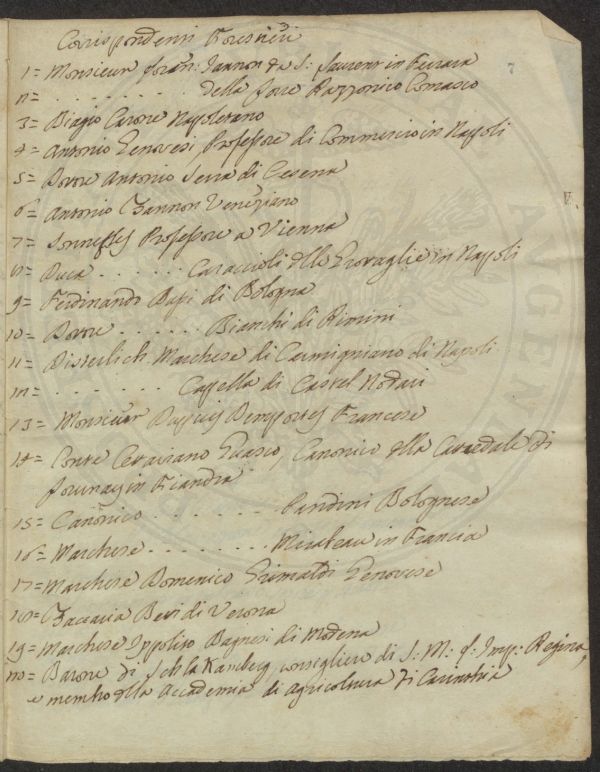 Corrispondenti Forestieri
7
1= Monsieur Joran: Jannon da S: Laurent in Ferrara
2= . . . . . . . . della Torre Rezzonico Comasco
3= Biagio Carone Napoletano
4= Antonio Genovesi Professore di Commercio in Napoli
5= Dottore Antonio Serra di Cesena
6= Antonio Zannon Veneziano
7= Sonnesfels Professore a Vienna
8= Duca . . . . . . Caraccioli delle Grottaglie in Napoli
9= Ferdinando Bassi di Bologna
10= Dottore . . . . . . Bianchi di Rimini
11= Bisterlich Marchese di Carmigniano di Napoli
12= . . . . . . . Cappella di Castel Nodari
13= Monsieur Dupuis Demportes Francese
14= Conte Ottaviano Guasco, Canonico della Cattedrale di
Tournay in Fiandra
15= Canonico . . . . . . . Bandini Bolognese
16= Marchese . . . . . . . Mirabeau in Francia
17= Marchese Domenico Grimaldi Genovese
18= Zaccaria Betti di Verona
19= Marchese Ippolito Bagnesi di Modena
20= Barone di Schlakamberg, consigliere di S: M: l': Imp: Regina,
e membro della Accademia di Agricoltura di Carinthia
AUGENDAE